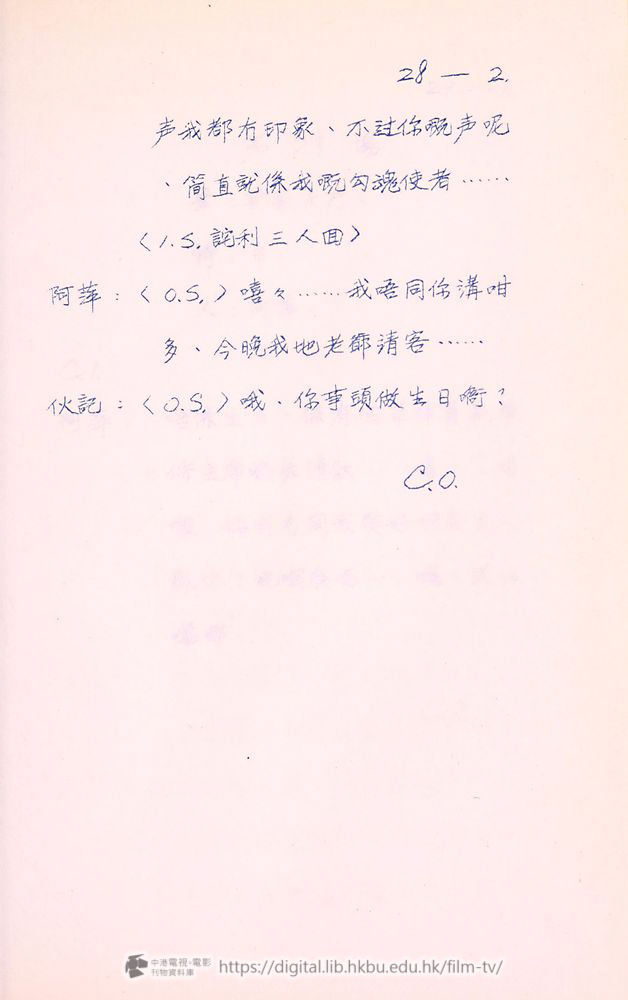 28 — 2.
声我都冇印象、不过你嘅声呢
、简直就係我嘅勾魂使者……
〈I.S. 詫利三人回〉
阿萍：〈O.S.〉嘻々……我唔同你溝咁
多、今晚我地老爺請客……
伙記：〈O.S.〉哦、你事頭做生日嗬？
C.O.
中港電視·電影
刊物資料庫
https://digital.lib.hkbu.edu.hk/film-tv/